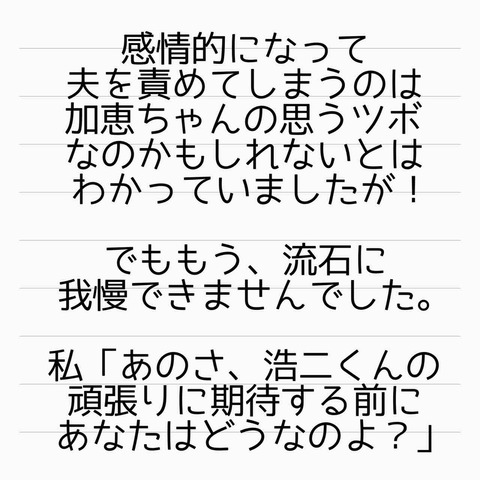 感情的になって
夫を責めてしまうのは
加恵ちゃんの思うツボ
なのかもしれないとは
わかっていましたが！
でももう、流石に
我慢できませんでした。
私「あのさ、浩二くんの
頑張りに期待する前に
あなたはどうなのよ？」